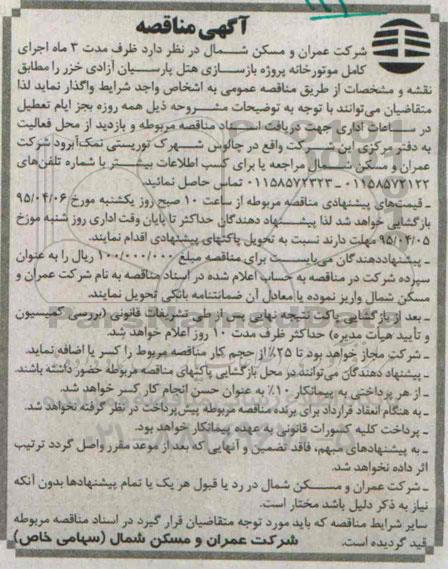 آگهی مناقصه
شرکت عمران و مسکن شمال در نظر دارد ظرف مدت ۳ ماه اجرای
کامل موتورخانه پروژه بازسازی هتل پارسیان آزادی خزر را مطابق
نقشه و مشخصات از طریق مناقصه عمومی به اشخاص واجد شرایط واگذار نماید لذا
متقاضیان می‌توانند با توجه به توضیحات مشروحه ذیل همه روزه بجز ایام تعطیل
در ساعات اداری جهت دریافت اسناد مناقصه مربوطه و بازدید از محل فعالیت
به دفتر مرکزی این شرکت واقع در چالوس شهرک توریستی نمک‌آبرود شرکت
عمران و مسکن شمال مراجعه یا برای کسب اطلاعات بیشتر با شماره تلفن‌های
۰۱۱۵۸۵۷۲۱۲۲ - ۰۱۱۵۸۵۷۲۳۲۳ تماس حاصل نمائید.
- قیمت‌های پیشنهادی مناقصه مربوطه از ساعت ۱۰ صبح روز یکشنبه مورخ ۹۵/۰۴/۰۶
بازگشایی خواهد شد لذا پیشنهاد دهندگان حداکثر تا پایان وقت اداری روز شنبه مورخ
۹۵/۰۴/۰۵ مهلت دارند نسبت به تحویل پاکتهای پیشنهادی اقدام نمایند.
- پیشنهاددهندگان می‌بایست برای مناقصه مبلغ ۱۰۰/۰۰۰/۰۰۰ ریال را به عنوان
سپرده شرکت در مناقصه به حساب اعلام شده در اسناد مناقصه به نام شرکت عمران و
مسکن شمال واریز نموده یا معادل آن ضمانتنامه بانکی تحویل نمایند.
- بعد از بازگشایی پاکت نتیجه نهایی پس از طی تشریفات قانونی (بررسی کمیسیون
و تأیید هیأت مدیره) حداکثر ظرف مدت ۱۰ روز اعلام خواهد شد.
- شرکت مجاز خواهد بود تا ۲۵٪ از حجم کار مناقصه مربوط را کسر یا اضافه نماید.
- پیشنهاد دهندگان می‌توانند در محل بازگشایی پاکتهای مناقصه مربوطه حضور داشته باشند.
- از هر پرداختی به پیمانکار ۱۰٪ به عنوان حسن انجام کار کسر خواهد شد.
- به هنگام انعقاد قرارداد برای برنده مناقصه مربوطه پیش‌پرداخت در نظر گرفته نخواهد شد.
- پرداخت کلیه کسورات قانونی به عهده پیمانکار خواهد بود.
- به پیشنهادهای مبهم، فاقد تضمین و آنهایی که بعد از موعد مقرر واصل گردد ترتیب
اثر داده نخواهد شد.
- شرکت عمران و مسکن شمال در رد یا قبول هر یک یا تمام پیشنهادها بدون آنکه
نیاز به ذکر دلیل باشد مختار است.
سایر شرایط مناقصه که باید مورد توجه متقاضیان قرار گیرد در اسناد مناقصه مربوطه
قید گردیده است. شرکت عمران و مسکن شمال (سهامی خاص)